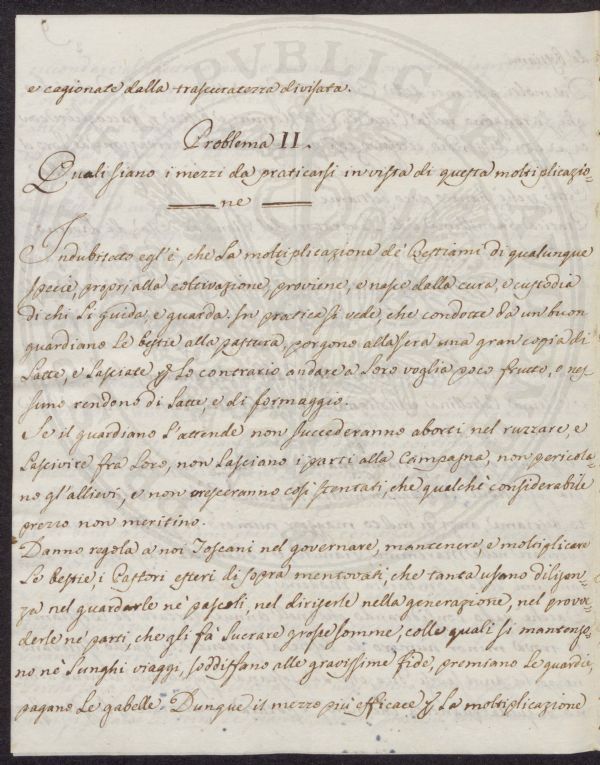 e cagionate dalla trascuratezza divisata.
Problema II.
Quali siano i mezzi da praticarsi in vista di questa moltiplicazio=
ne
Indubitato egl'è, che la moltiplicazione de' Bestiami di qualunque
specie, proprj alla coltivazione, proviene, e nasce dalla cura, e custodia
di chi li guida, e guarda. In pratica si vede, che condotte da un buon
guardiano le bestie alla pastura, porgono alla sera una gran copia di
latte, e lasciate p lo contrario andare a loro voglia poco frutto, o nes=
suno rendono di latte, e di formaggio.
Se il guardiano l'attende non succederanno aborti nel ruzzare, e
lascivire fra loro, non lasciano i parti alla Campagna, non pericola=
no gl'allievi, e non cresceranno così stentati, che qualchè considerabile
prezzo non meritino.
Danno regola a noi Toscani nel governare, mantenere, e moltiplicare
le bestie, i Pastori esteri di sopra mentovati, che tanta usano diligen=
za nel guardarle ne' pascoli, nel dirigerle nella generazione, nel provve=
derle ne' parti, che gli fà lucrare grosse somme, colle quali si mantengo=
no ne' lunghi viaggi, soddisfano alle gravissime fide, premiano le guardie,
pagano le gabelle. Dunque il mezzo più efficace p la moltiplicazione